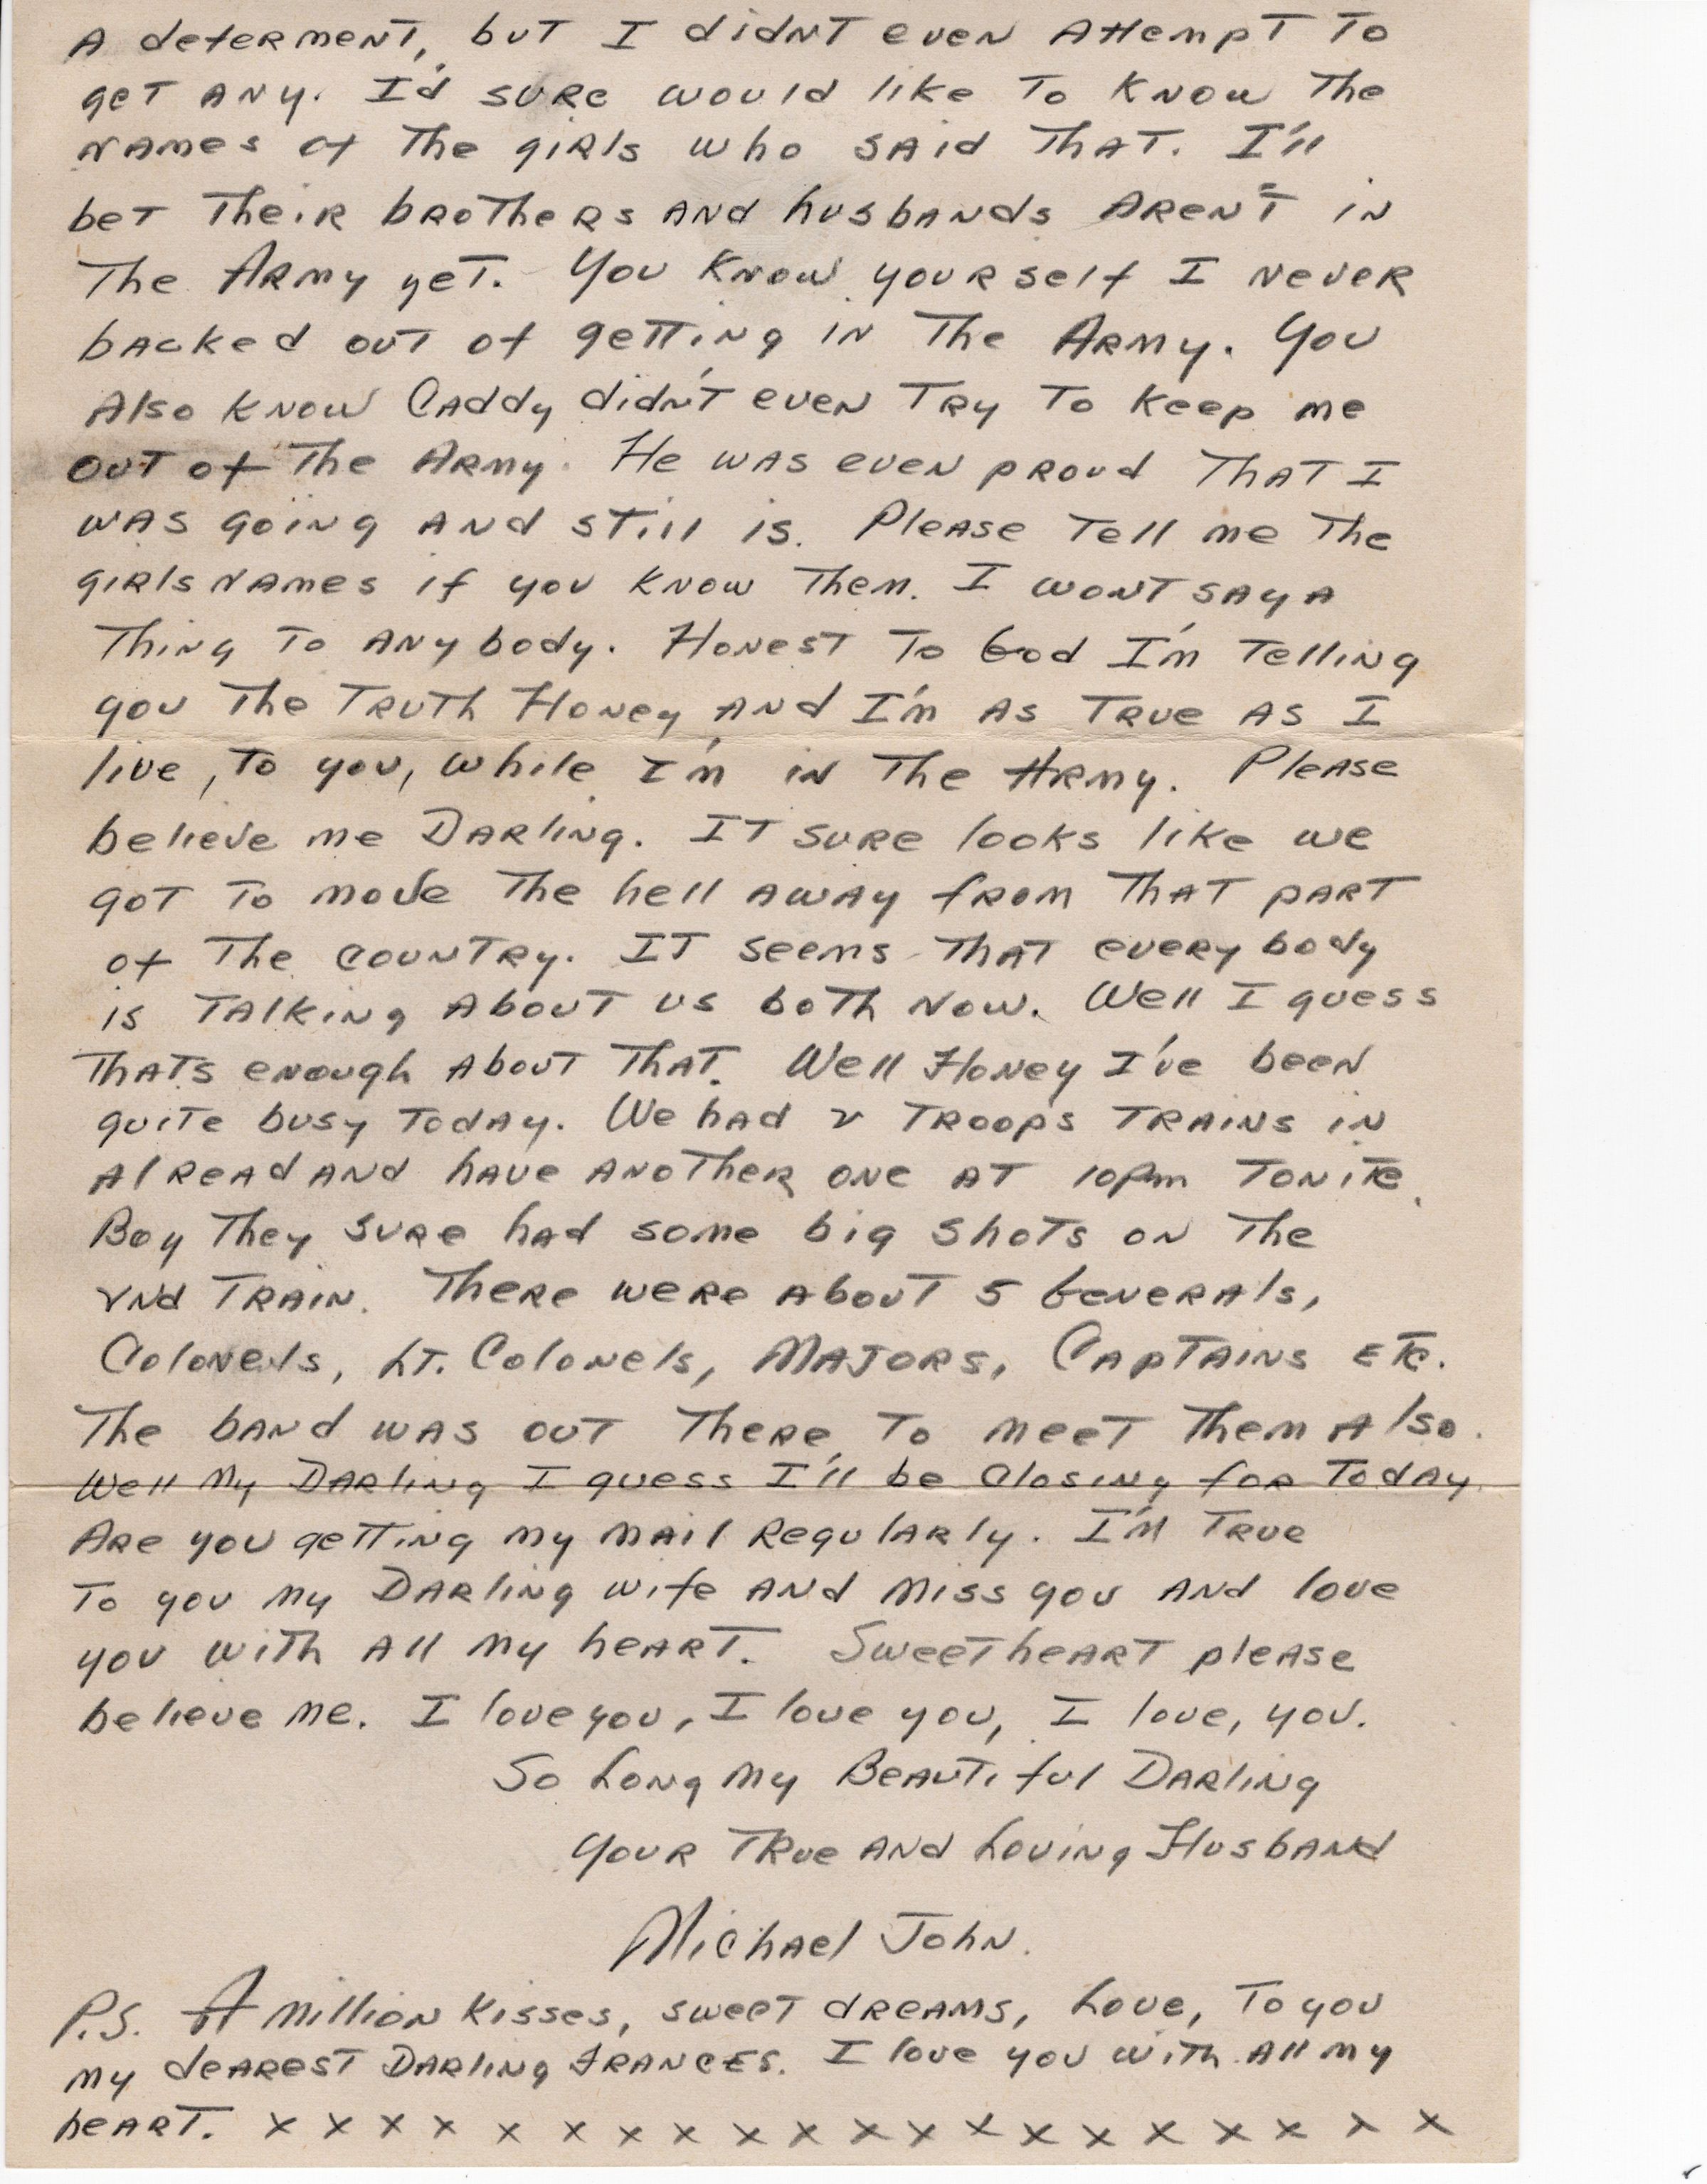 A deferment, but I didn't even Attempt To
get any. I'd sure would like To know The
names of The girls who said That. I'll
bet Their brothers and husbands Aren't in
The Army yet. You know yourself I never
backed out of getting in The Army. You
Also know Caddy didn't even Try To keep me
out of The Army. He was even proud That I
was going and still is. Please Tell me The
girls names if you know Them. I wont say a
Thing To anybody. Honest To God I'm Telling
you The Truth Honey and I'm as True as I
live, To you, while I'm in The Army. Please
believe me Darling. It sure looks like we
got To move The hell away from That part
of The country. It seems That every body
is Talking About us both now. Well I guess
Thats enough About That. Well Honey I've been
quite busy Today. We had 2 Troops Trains in
alread and have another one at 10pm Tonite.
Boy They sure had some big shots on The
2nd Train. There were About 5 Generals,
Colonels, Lt. Colonels, Majors, Captains Etc.
The band was out There To meet Them Also.
Well My Darling I guess I'll be Closing for Today.
Are you getting my mail Regularly. I'm True
To you my Darling wife and miss you and love
you with All my heart. Sweetheart please
believe me. I love you, I love you, I love, you.
So Long My Beautiful Darling
Your True and Loving Husband
Michael John.
P.S. A million kisses, sweet dreams, Love, To you
my dearest Darling Frances. I love you with All my
heart. x x x x x x x x x x x x x x x x x x x x x